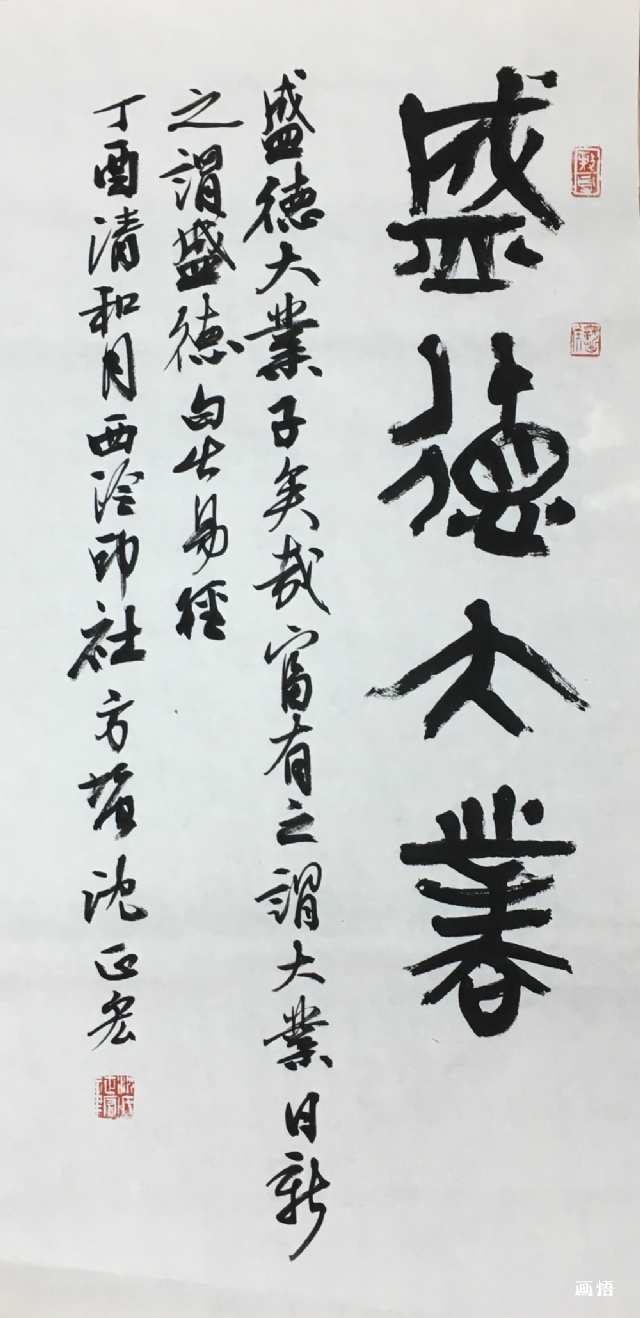 盛德大業
盛德大業子矣哉富有之謂大業日新
之謂盛德句出易經
丁酉清和月西泠印社方舟沈正宏
画悟